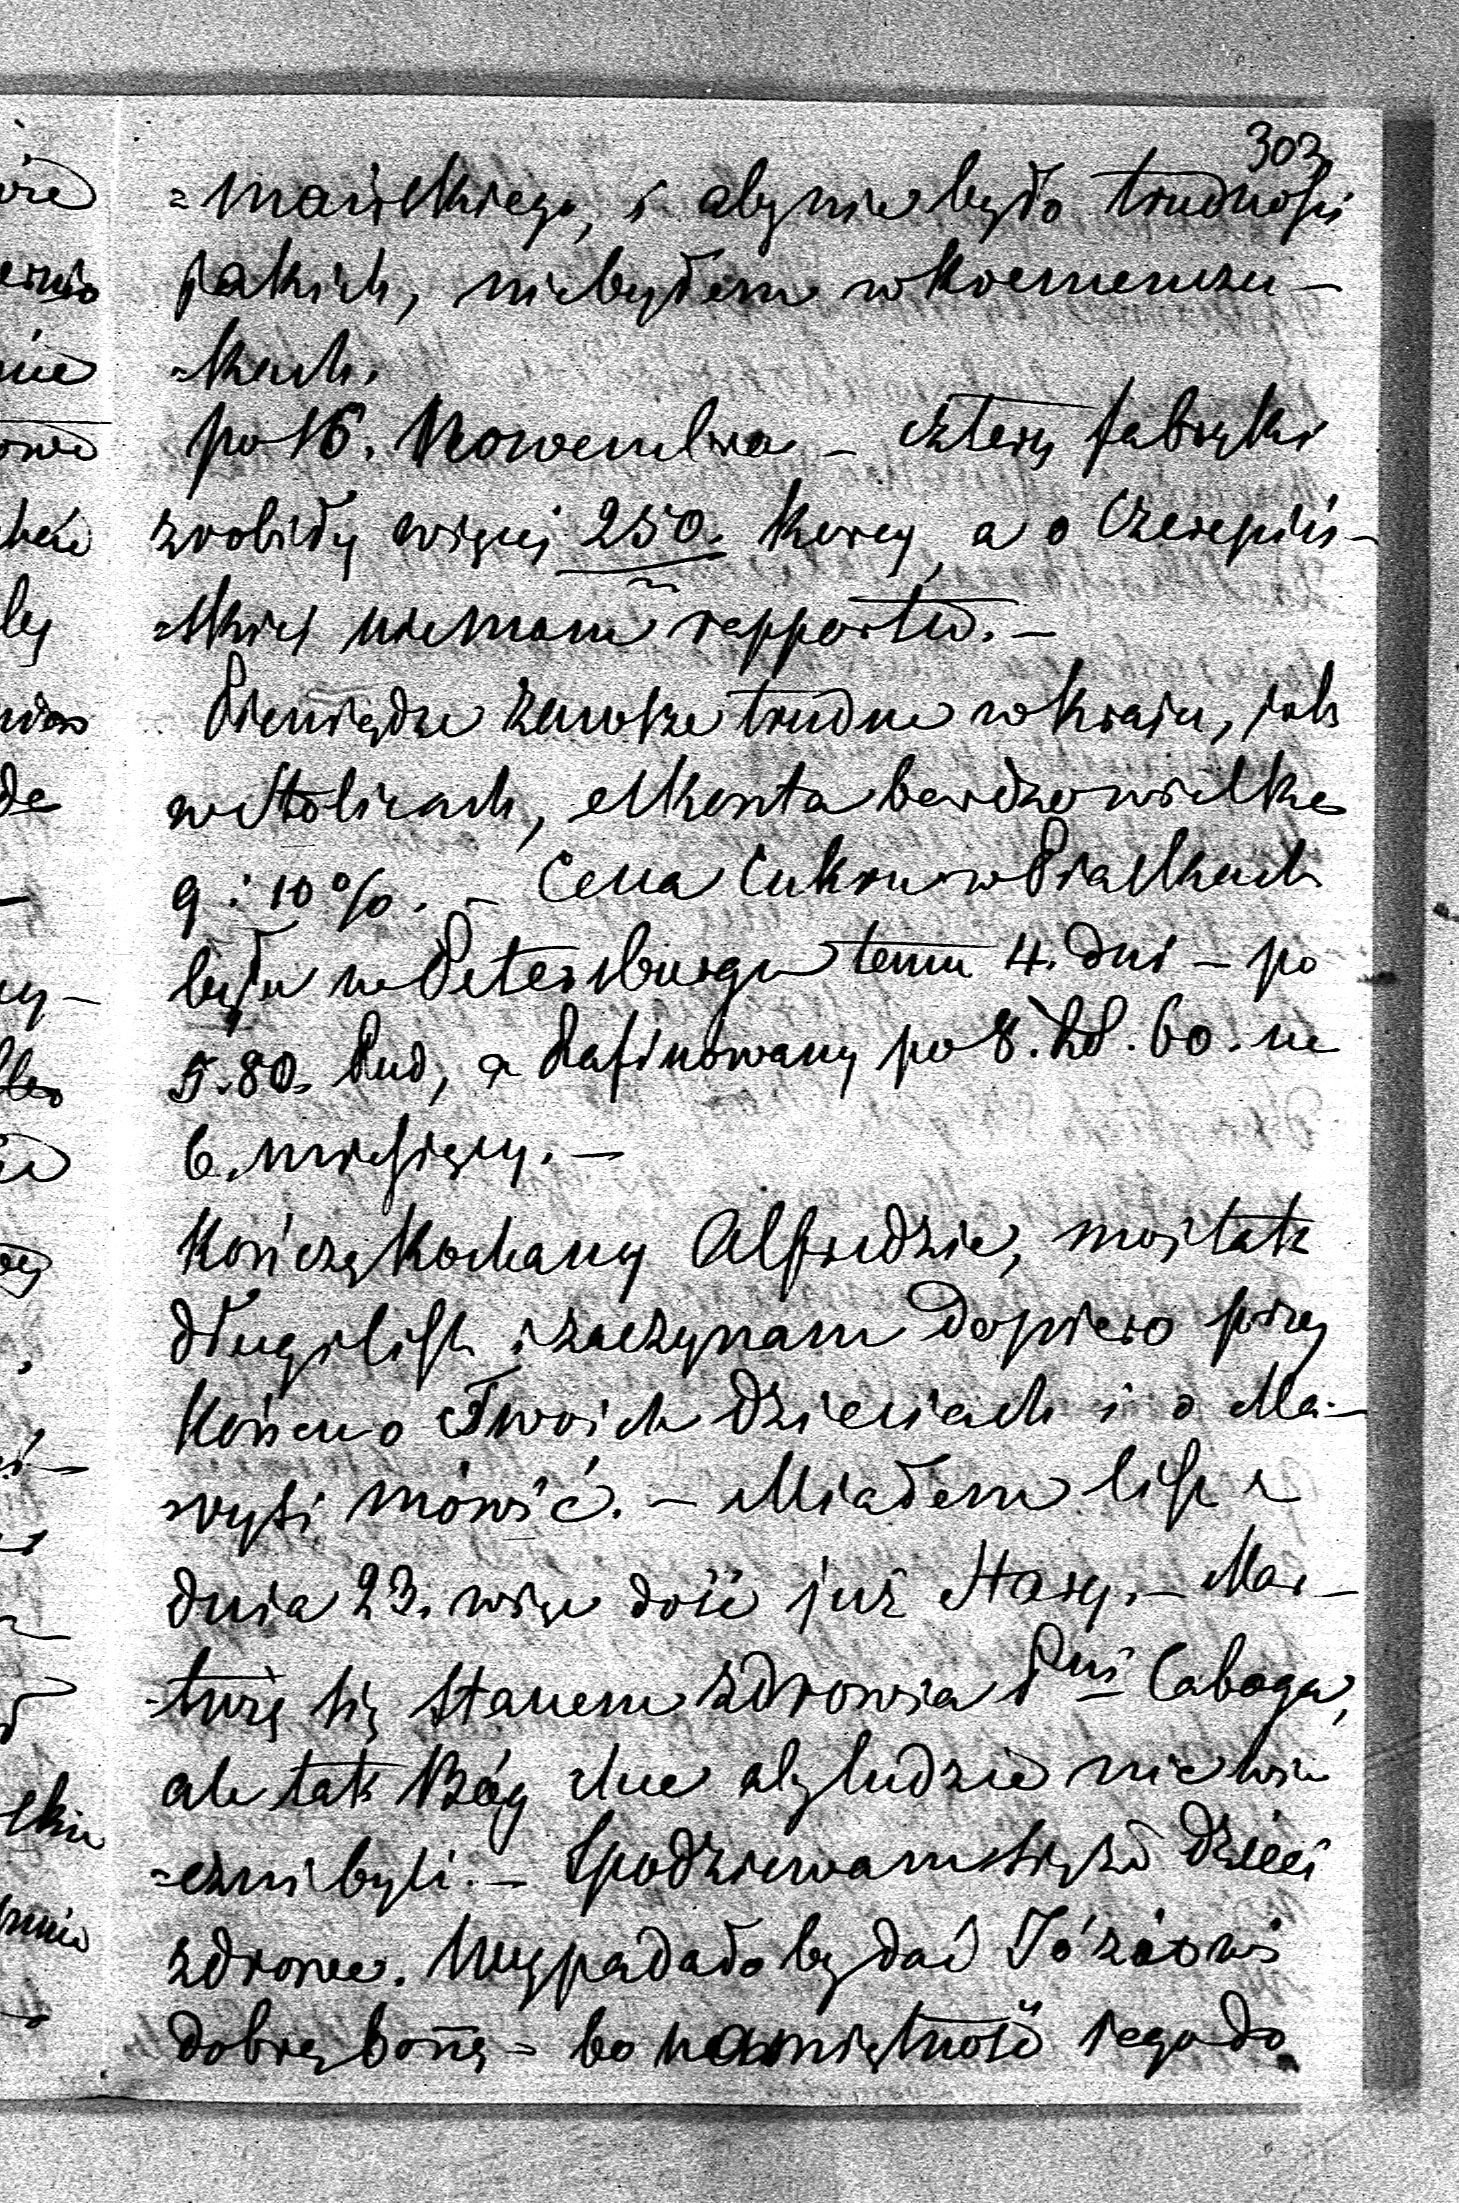 303
=mańskiego, i aby nie było trudności
jakich, niebyłem w Kremenczu-
=kach.
po 16. Nowembra - cztery fabryki
zrobiły więcej 250. korcy, a o Czerepiń-
=skiej niemam rapportu. -
Pieniądze zawsze trudne w kraju, jak
w stolicach, eskonta bardzo wielkie
9 : 10%. - Cena Cukru w Piaskach
była w Petersburgu temu 4. dni - po
5.80. Pud, a Rafinowany po 8. 60. na
6. miesięcy. -
Kończę Kochany Alfredzie, mój tak
długi list, i zaczynam dopiero przy
końcu o Twoich Dzieciach i o Ma-
=ryti mówić. - Miałem list z
dnia 23. więc dość już stary. - Mar-
=twię się stanem zdrowia Pni Caboga,
ale tak Bóg chce aby ludzie nie wie
=czni byli. - Spodziewam się że Dzieci
zdrowe. Wypadało by dać Józiowi
dobrą bonę - bo namiętność jego do